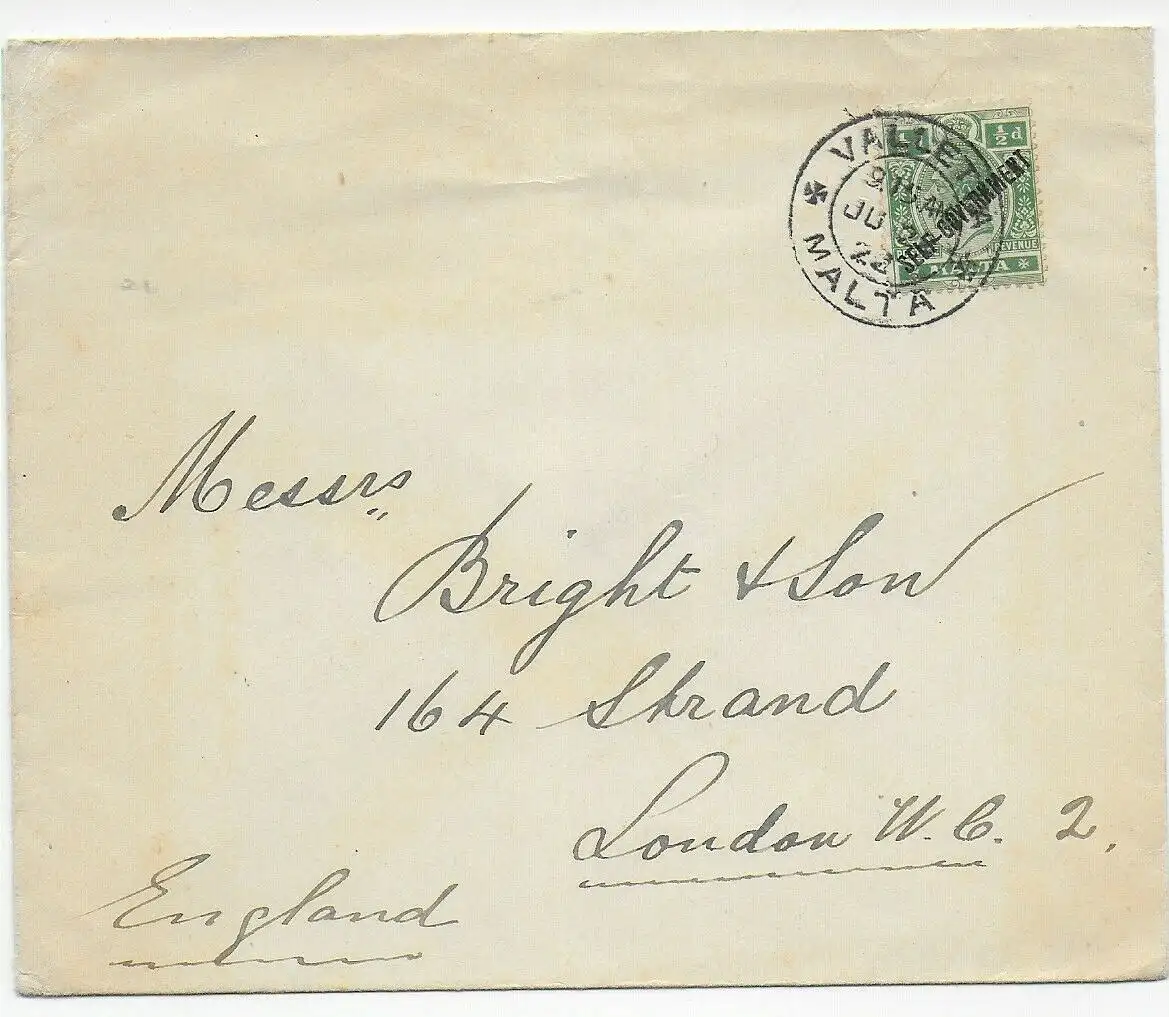 VALLETTA
9 15 AM
JU
22
MALTA
½d
SELF-GOVERNMENT
REVENUE
MALTA
Messrs
Bright & Son
164 Strand
London W.C. 2.
England